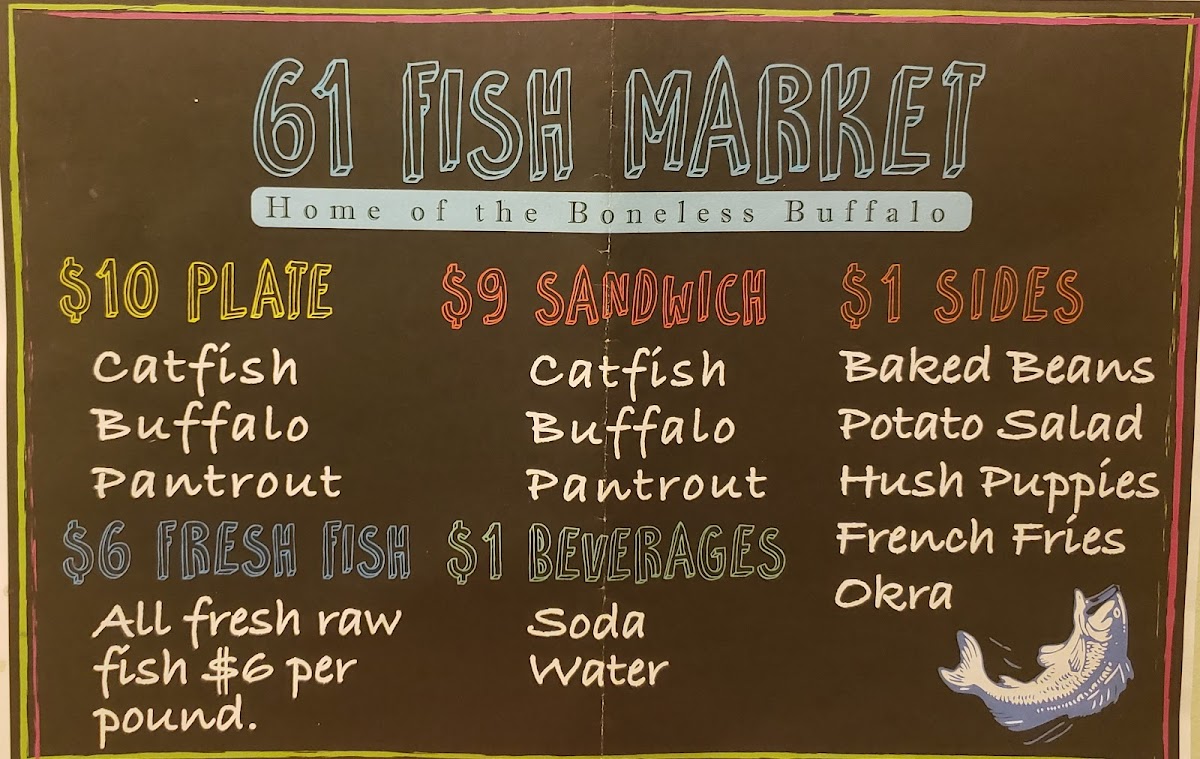 61 FISH MARKET
Home of the Boneless Buffalo
$10 PLATE
Catfish
Buffalo
Pantrout
$6 FRESH FISH
All fresh raw
fish $6 per
pound.
$9 SANDWICH
Catfish
Buffalo
Pantrout
$1 BEVERAGES
Soda
Water
$1 SIDES
Baked Beans
Potato Salad
Hush Puppies
French Fries
Okra